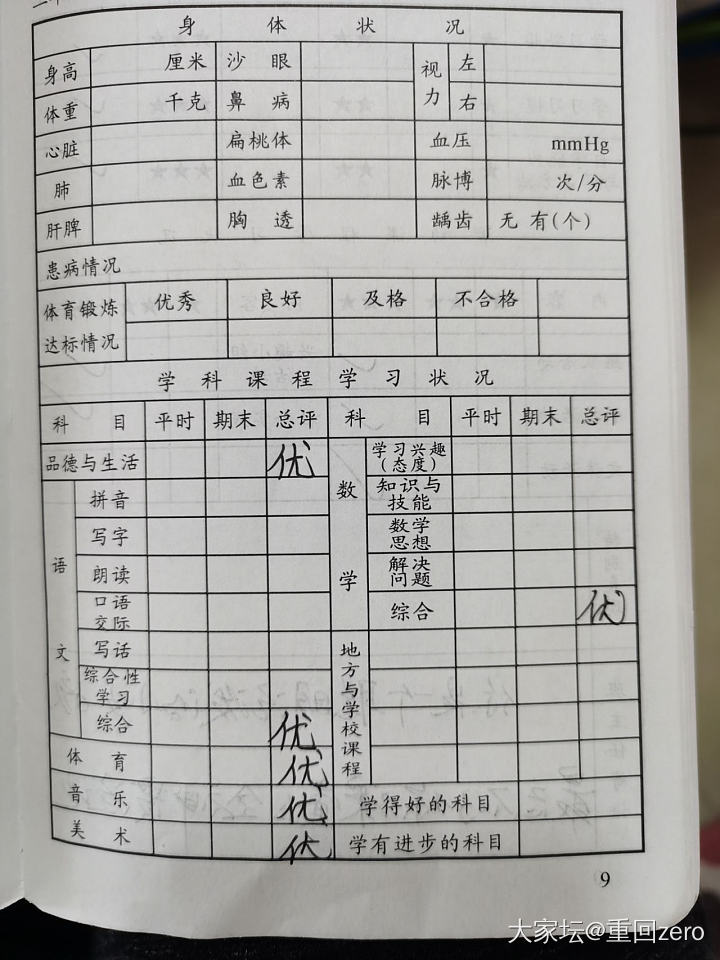 身 体 状 况
身高 厘米 沙 眼 视力 左
体重 千克 鼻 病 右
心脏 扁桃体 血压 mmHg
肺 血色素 脉博 次/分
肝脾 胸 透 龋齿 无 有(个)
患病情况
体育锻炼达标情况 优秀 良好 及格 不合格
学 科 课 程 学 习 状 况
科 目 平时 期末 总评 科 目 平时 期末 总评
品德与生活 优 数学 学习兴趣(态度)
语文 拼音 知识与技能
写字 数学思想
朗读 解决问题
口语交际 综合 优
写话 地方与学校课程
综合性学习
综合 优
体 育 优
音 乐 优 学得好的科目
美 术 优 学有进步的科目
9
大家坛@重回zero